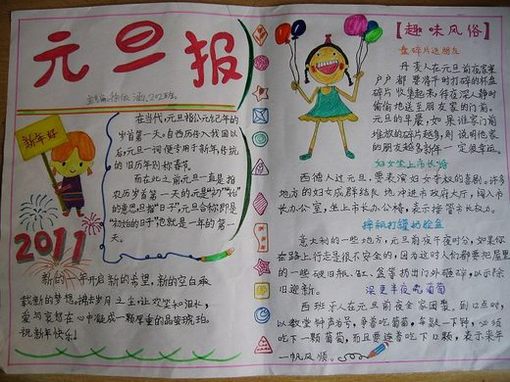 元旦报
202班
在当代,元旦指公元纪年的
第一天。自西历传入我国以
后,元旦一词便专用于新年,传统
的旧历年则称春节。
而在此之前,元旦一直是指
农历岁首第一天的。元是"初""始"
的意思,旦指"日子",元旦合称即是
"初始的日子",也就是一年的第一
天。
新年好
2011
新的一年开启新的希望,新的空白承
载新的梦想。
爱与哀愁在心中凝成一颗厚重的晶莹琥珀。
祝新年快乐!
【趣味风俗】
盘碎片送朋友
丹麦人在元旦前夜,家家
户户都要将平时打碎的杯盘
碎片收集起来,待夜深人静时
偷偷地送至朋友家的门前。
元旦的早晨,如果谁家门前
堆放的碎片越多,则说明他家
的朋友越多,新年一定很幸运。
妇女坐上市长椅
西德人过元旦,
地方的妇女成群结队地冲进市政府大厅,闯入市
长办公室,坐上市长办公椅,表示接管市长权力。
摔瓶打罐抛脸盆
意大利的一些地方,元旦前夜午夜时分,如果你
在路上行走是很不安全的,因为这时人们都要把屋里
的一些破旧瓶、缸、盆等扔出门外砸碎,以示除
旧迎新。
深更半夜吃葡萄
西班牙人在元旦前夜全家团聚,到12点时,
以教堂钟声为号,争着吃葡萄,每敲一下钟,必须
吃下一颗葡萄,而且要连着吃下12颗,表示来年
一帆风顺。